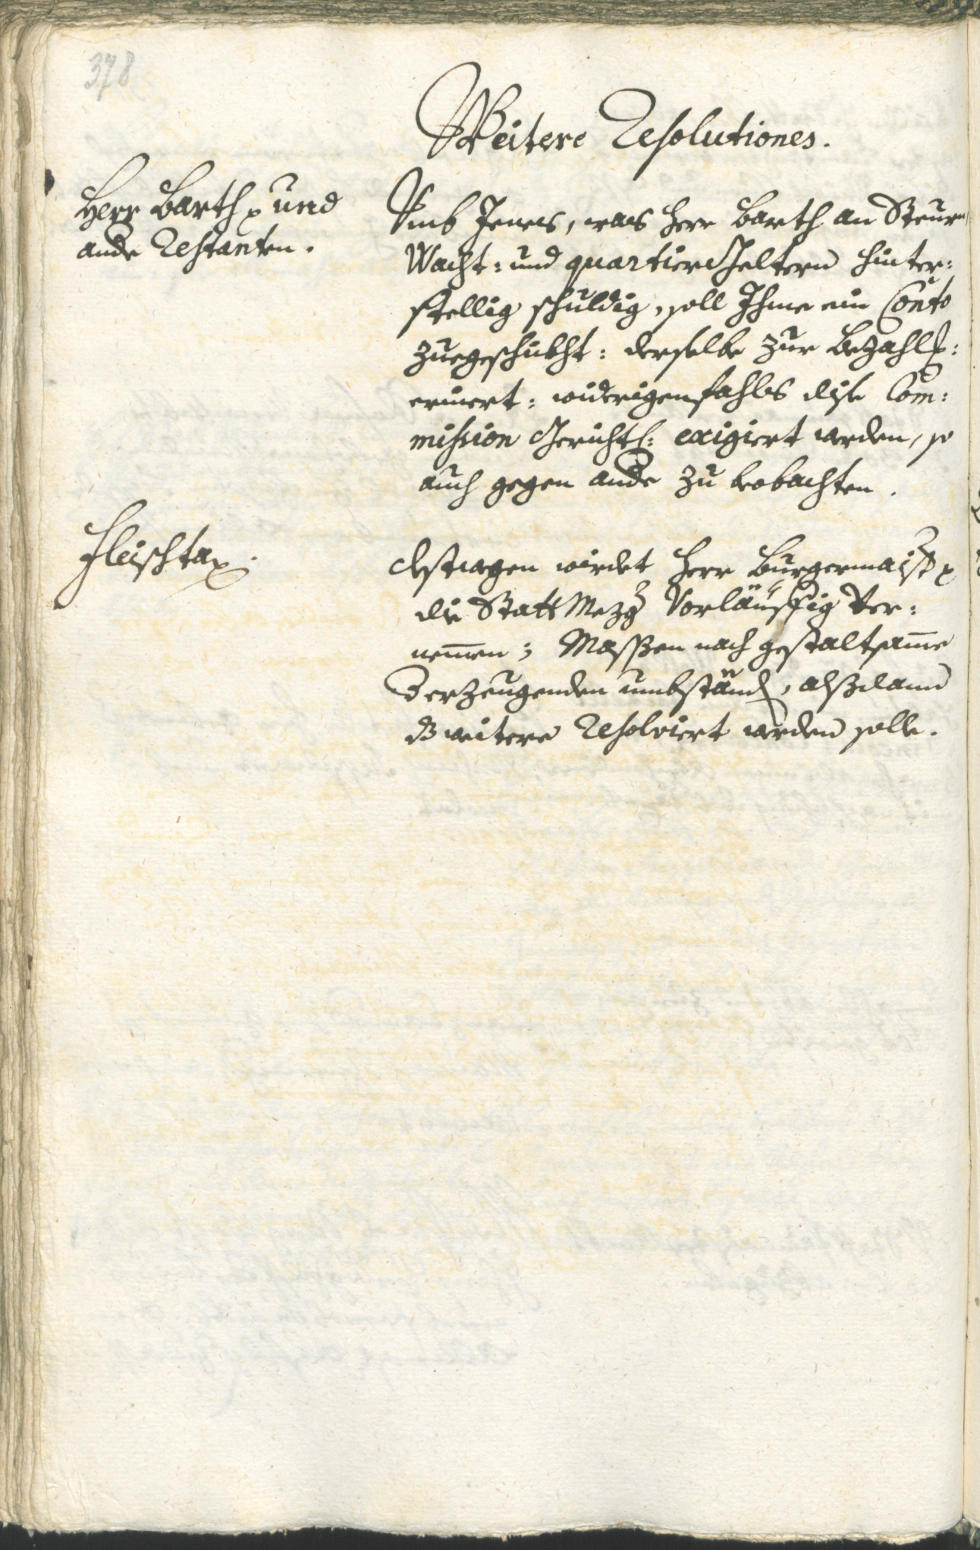 378
Weitere Resolutiones.
Herr Barth und
andre Restanten.
Vmb Jenes, was Herr Barth an Steur
Wacht: und quartier Geltern hinter:
stellig schuldig, soll Ihme ein Conto
zuegeschikht: derselbe zur Bezahl:
erinert: widerigenfahls dise Com:
mission Gerichtl: exigiert werden, so
auch gegen andre zu beobachten.
Fleischtax.
destwegen wirdet Herr Burgermaistr
die Statt Mezg Vorläuffig Ver:
nemen; Massen nach gestaltsame
der zeugenden umbständ, alßdann
dß weitere Resolviert werden solle.